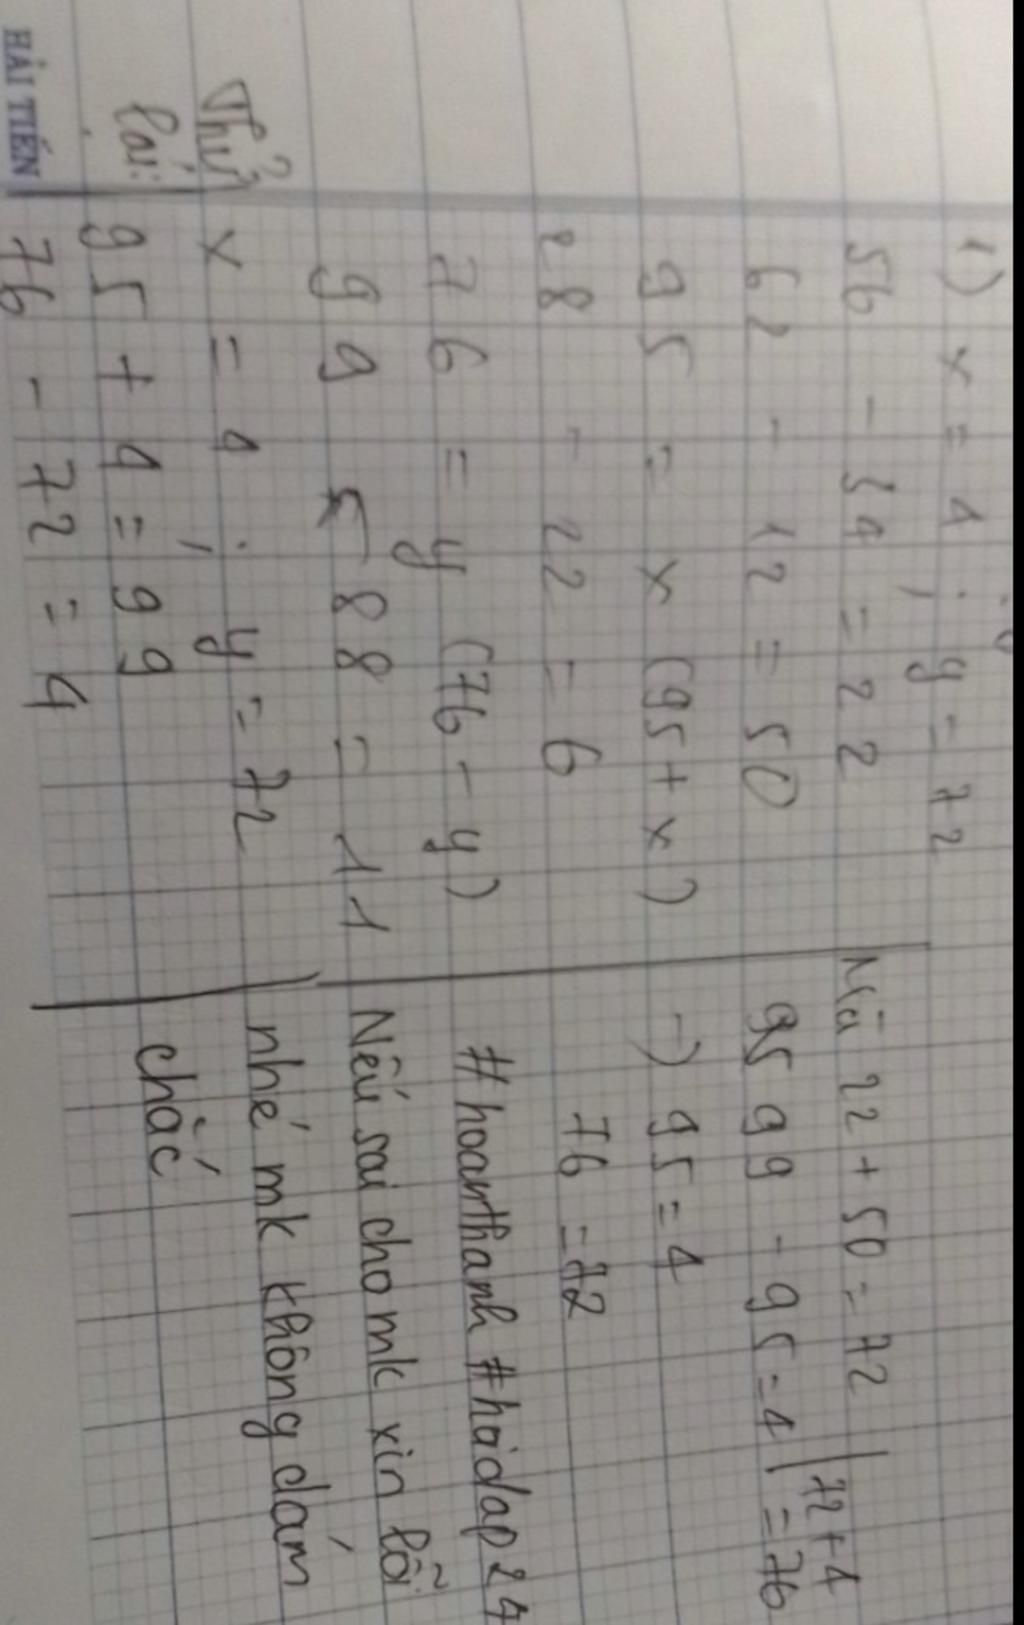 1) x = 4 ; y = 72
56 - 34 = 22
62 - 12 = 50
95 = x (95 + x)
28 - 22 = 6
76 = y (76 - y)
99 88 = 11
Thử lại: x = 4 ; y = 72
95 + 4 = 99
76 - 72 = 4
Mà 22 + 50 = 72
95 99 - 95 = 4
72 + 4 = 76
-) 95 = 4
76 = 72
#hoanthanh #hoidap24
Nếu sai cho mk xin lỗi
nhé mk không dám
chắc
HẢI TIẾN